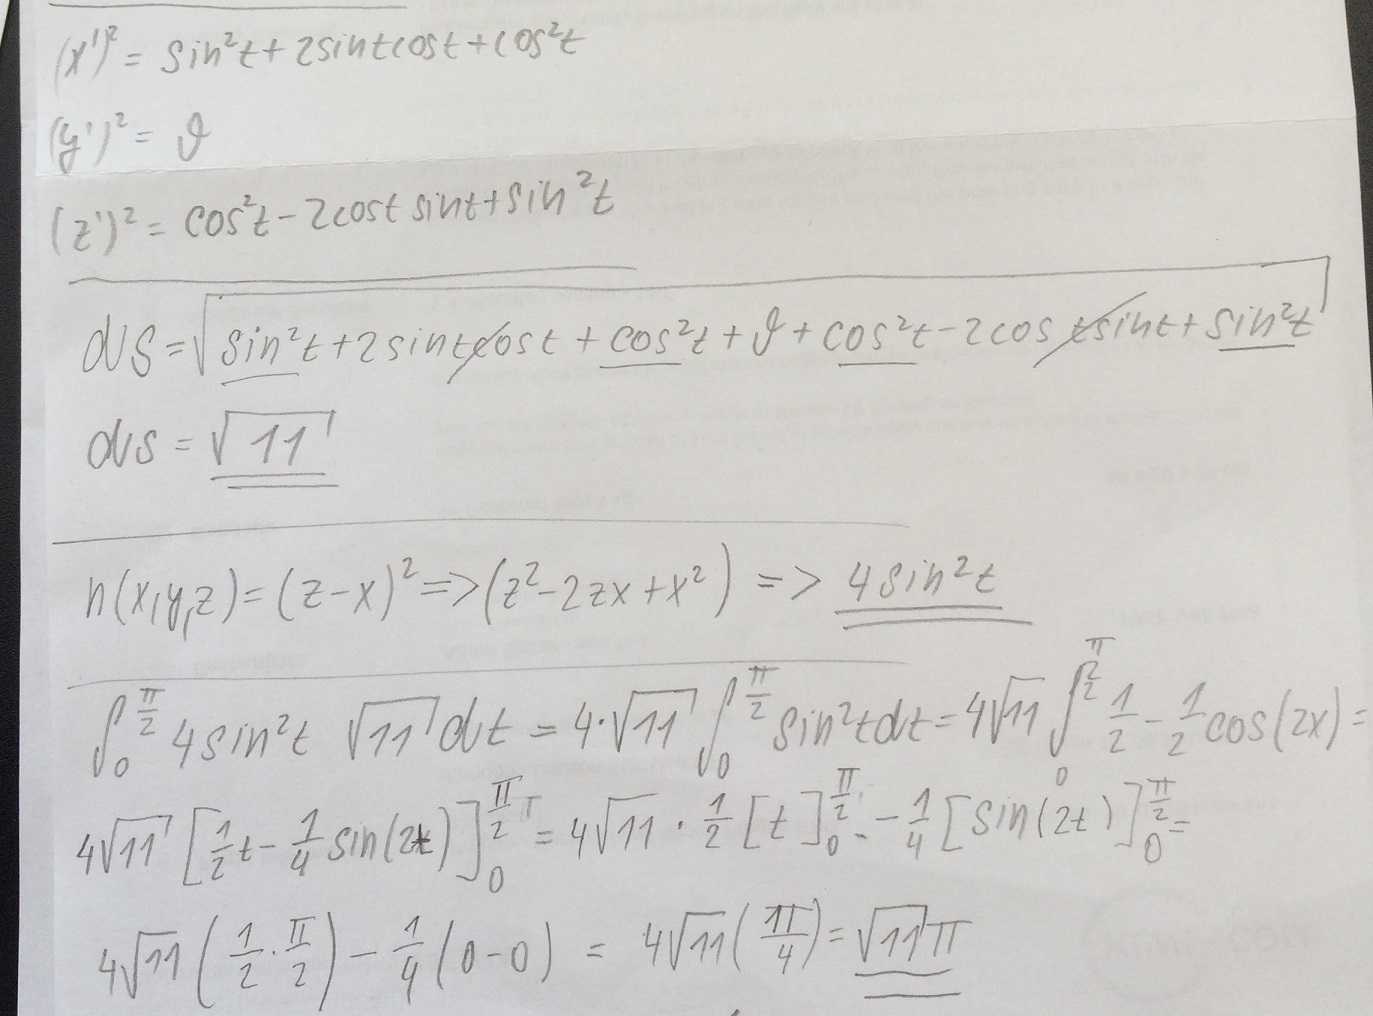 (x')² = sin²t + 2sintcost + cos²t
(y')² = 9
(z')² = cos²t - 2cost sint + sin²t
ds = √(sin²t + 2sintcost + cos²t + 9 + cos²t - 2cos tsint + sin²t)
ds = √11
n(x,y,z) = (z-x)² => (z² - 2zx + x²) => 4sin²t
∫₀^(π/2) 4sin²t √11 dt = 4·√11 ∫₀^(π/2) sin²t dt = 4√11 ∫₀^(π/2) 1/2 - 1/2 cos(2x) =
4√11 [1/2 t - 1/4 sin(2t)]₀^(π/2) = 4√11 · 1/2 [t]₀^(π/2) - 1/4 [sin(2t)]₀^(π/2) =
4√11 (1/2 · π/2) - 1/4 (0-0) = 4√11 (π/4) = √11 π